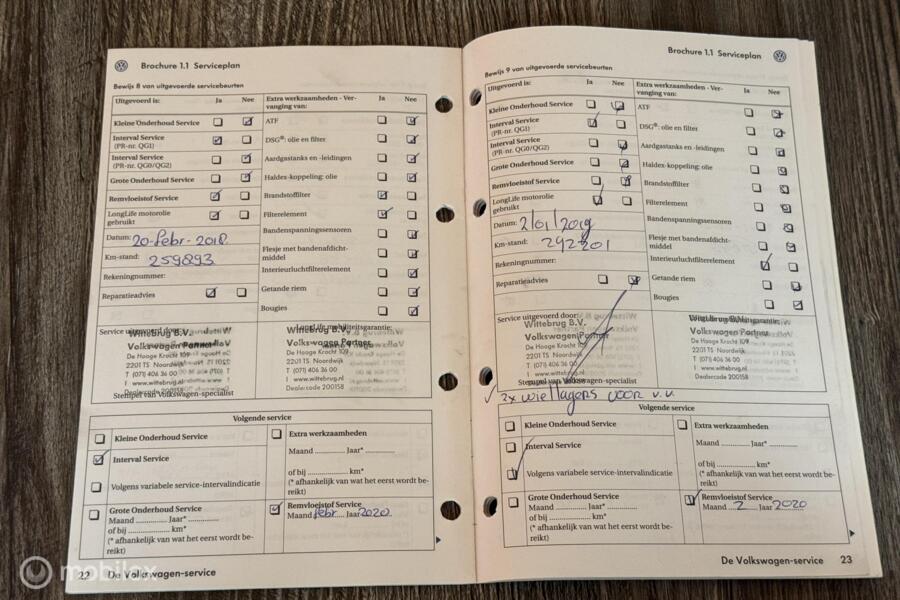 Brochure 1.1 Serviceplan
Bewijs 8 van uitgevoerde servicebeurten
Uitgevoerd is: Ja Nee
Kleine Onderhoud Service
Interval Service
(PR-nr. QG1)
Interval Service
(PR-nr. QG0/QG2)
Grote Onderhoud Service
Remvloeistof Service
LongLife motorolie
gebruikt
Datum: 20-febr-2018
Km-stand: 259893
Rekeningnummer:
Reparatieadvies
Extra werkzaamheden - Ver-
vanging van: Ja Nee
ATF
DSG®: olie en filter
Aardgastanks en -leidingen
Haldex-koppeling: olie
Brandstoffilter
Filterelement
Bandenspanningssensoren
Flesje met bandenafdicht-
middel
Interieurluchtfilterelement
Getande riem
Bougies
Service uitgevoerd door:
Wittebrug B.V.
Volkswagen Partner
De Hooge Krocht 109
2201 TS Noordwijk
T (071) 406 36 00
I www.wittebrug.nl
Dealercode 200158
Stempel van Volkswagen-specialist
LongLife mobiliteitsgarantie:
Wittebrug B.V.
Volkswagen Partner
De Hooge Krocht 109
2201 TS Noordwijk
T (071) 406 36 00
I www.wittebrug.nl
Dealercode 200158
Volgende service
Kleine Onderhoud Service
Interval Service
Volgens variabele service-intervalindicatie
Grote Onderhoud Service
Maand ............ Jaar* ............
of bij ............ km*
(* afhankelijk van wat het eerst wordt be-
reikt)
Extra werkzaamheden
Maand ............ Jaar* ............
of bij ............ km*
(* afhankelijk van wat het eerst wordt be-
reikt)
Remvloeistof Service
Maand febr Jaar 2020
22 De Volkswagen-service
Brochure 1.1 Serviceplan
Bewijs 9 van uitgevoerde servicebeurten
Uitgevoerd is: Ja Nee
Kleine Onderhoud Service
Interval Service
(PR-nr. QG1)
Interval Service
(PR-nr. QG0/QG2)
Grote Onderhoud Service
Remvloeistof Service
LongLife motorolie
gebruikt
Datum: 2/01/2019
Km-stand: 292201
Rekeningnummer:
Reparatieadvies
Extra werkzaamheden - Ver-
vanging van: Ja Nee
ATF
DSG®: olie en filter
Aardgastanks en -leidingen
Haldex-koppeling: olie
Brandstoffilter
Filterelement
Bandenspanningssensoren
Flesje met bandenafdicht-
middel
Interieurluchtfilterelement
Getande riem
Bougies
Service uitgevoerd door:
Wittebrug B.V.
Volkswagen Partner
De Hooge Krocht 109
2201 TS Noordwijk
T (071) 406 36 00
I www.wittebrug.nl
Dealercode 200158
Stempel van Volkswagen-specialist
Wittebrug B.V.
Volkswagen Partner
De Hooge Krocht 109
2201 TS Noordwijk
T (071) 406 36 00
I www.wittebrug.nl
Dealercode 200158
2x wiellagers voor v.v.
Volgende service
Kleine Onderhoud Service
Interval Service
Volgens variabele service-intervalindicatie
Grote Onderhoud Service
Maand ............ Jaar* ............
of bij ............ km*
(* afhankelijk van wat het eerst wordt be-
reikt)
Extra werkzaamheden
Maand ............ Jaar* ............
of bij ............ km*
(* afhankelijk van wat het eerst wordt be-
reikt)
Remvloeistof Service
Maand 2 Jaar 2020
De Volkswagen-service 23
mobilox